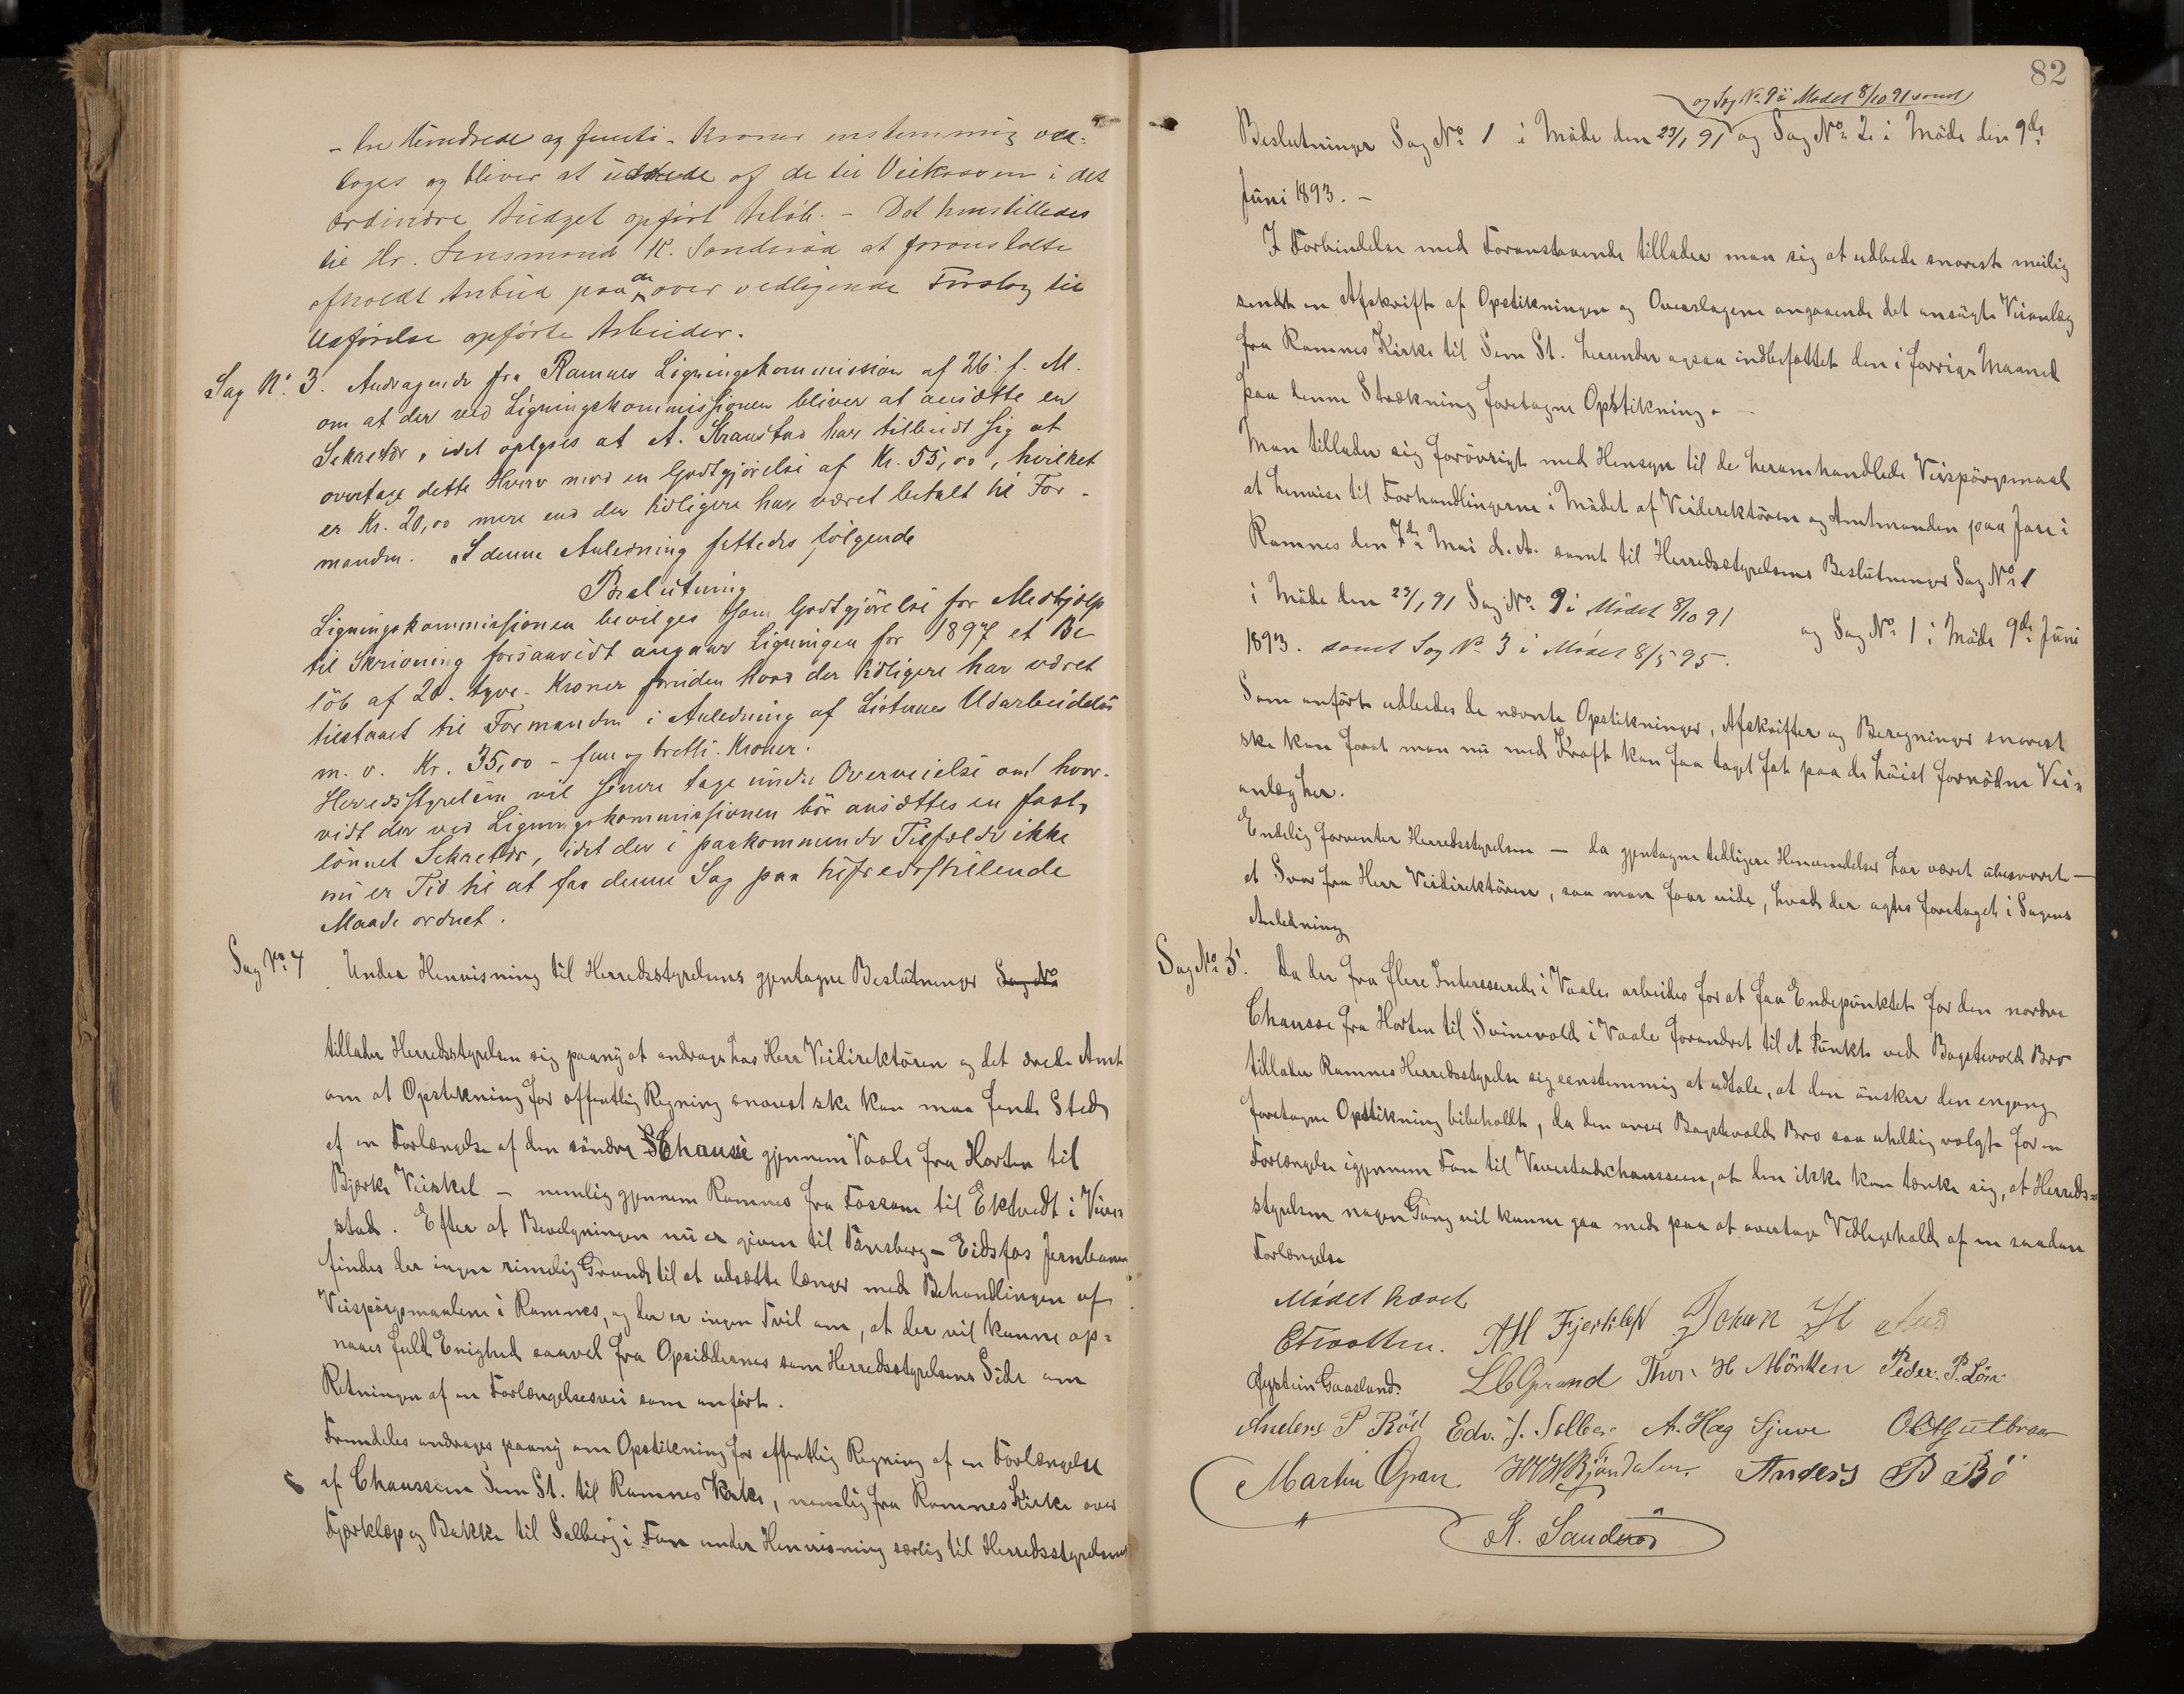 - tre Hundrede og femti - Kroner enstemmig ved-
toges og bliver at udrede af de til Veikassen i det
ordinære Budget opført Beløb. - Det henstilledes
til Hr. Lensmand K. Sanderød at foranstalte
afholdt Anbud paa de over vedliggende Forslag til
Udførelse opførte Arbeider.
Sag No. 3. Andragende fra Ramnes Ligningskommission af 26. f. M.
om at der ved Ligningskommissionen bliver at ansætte en
Sekretær, idet oplyses at A. Kraustad har tilbudt sig at
overtage dette Hverv mod en Godtgjörelse af Kr. 55,00, hvilket
er Kr. 20,00 mere end der tidligere har været betalt til For-
manden. I denne Anledning fattedes følgende
Beslutning
Ligningskommissionen bevilges som Godtgjörelse for Medhjælp
til Skrivning forsaavidt angaar Ligningen for 1897 et Be-
løb af 20 - tyve - Kroner foruden hvad der tidligere har været
tilstaaet til Formanden i Anledning af Listernes Udarbeidelse
m. v. Kr. 35,00 - fem og tretti - Kroner.
Herredsstyrelsen vil senere tage under Overveielse om hvor-
vidt der ved Ligningskommissionen bör ansættes en fast,
lönnet Sekretær, idet der i paakommende Tilfælde ikke
nu er Tid til at faa denne Sag paa tilfredsstillende
Maade ordnet.
Sag No. 4 Under Henvisning til Herredsstyrelsens gjentagne Beslutninger Sag No
tillader Herredsstyrelsen sig paany at andrage hos Herr Veidirektören og det ærede Amt
om at Opstikning for offentlig Regning snarest ske kan maa finde Sted
af en Forlængelse af den söndre Chaussé gjennem Vaale fra Horten til
Bjerke Veiskel - nemlig gjennem Ramnes fra Fossum til Ektvedt i Viver-
stad. Efter at Bevilgningen nu er given til Tönsberg - Eidsfos Jernbane
findes der ingen rimelig Grund til at udsætte længer med Behandlingen af
Veispörgsmaalene i Ramnes, og der er ingen Tvil om, at der vil kunne op-
naaes fuld Enighed saavel fra Opsiddernes som Herredsstyrelsens Side om
Retningen af en Forlængelsesvei som anfört.
Fremdeles andrages paany om Opstikning for offentlig Regning af en Forlængelse
af Chausseen Sem St. til Ramnes Kirke, nemlig fra Ramnes Kirke over
Fjærklep og Bakke til Solberg i Fon under Henvisning særlig til Herredsstyrelsens
82
og Sag No. 9 i Mødet 8/10 91 samt
Beslutninger Sag No. 1 i Möde den 23/1 91 og Sag No. 2 i Möde den 9de
Juni 1893. -
I Forbindelse med Foranstaaende tillader man sig at udbede snarest mulig
sendt en Afskrift af Opstikningen og Overslagene angaaende det ansögte Veianlæg
fra Ramnes Kirke til Sem St. herunder ogsaa indbefattet den i forrige Maaned
paa denne Strækning foretagne Opstikning. -
Man tillader sig forövrigt med Hensyn til de heromhandlede Veispörgsmaal
at henvise til Forhandlingerne i Mödet af Veidirektören og Amtmanden paa Jare i
Ramnes den 7de Mai d. A. samt til Herredsstyrelsens Beslutninger Sag No. 1
i Möde den 23/1 91 Sag No. 9 i Mödet 8/10 91 og Sag No. 1 i Möde 9de Juni
1893. samt Sag No. 3 i Mödet 8/5 95.
Som anfört udbedes de nævnte Opstikninger, Afskrifter og Beregninger snarest
ske kan forat man nu med Kraft kan faa taget fat paa de höist fornödne Vei-
anlæg her.
Endelig forventer Herredsstyrelsen - da gjentagne tidligere Henvendelser har været ubesvaret -
et Svar fra Herr Veidirektören, saa man faar vide, hvad der agtes foretaget i Sagens
Anledning
Sag No. 5. Da der fra flere Interesserede i Vaale arbeides for at faa Endepunktet for den nordre
Chausse fra Horten til Svinevold i Vaale forandret til et Punkt ved Bogstevold Bro
tillader Ramnes Herredsstyrelse sig eenstemmig at udtale, at den önsker den engang
foretagne Opstikning bibeholdt, da den anser Bogstevold Bro saa uheldig valgt for en
Forlængelse igjennem Fon til Viverstadchausseen, at den ikke kan tænke sig, at Herreds-
styrelsen nogen Gang vil kunne gaa med paa at overtage Vedligehold af en saadan
Forlængelse
Mødet hævet
AH Fjerklep Johan H
Øystein Gaasland. Thor H Mörken Peder P.
Anders P Röd Edv. J. Solberg A. Hag
Martin Gran HHBjöndalen. Anders B Bö
K. Sanderød